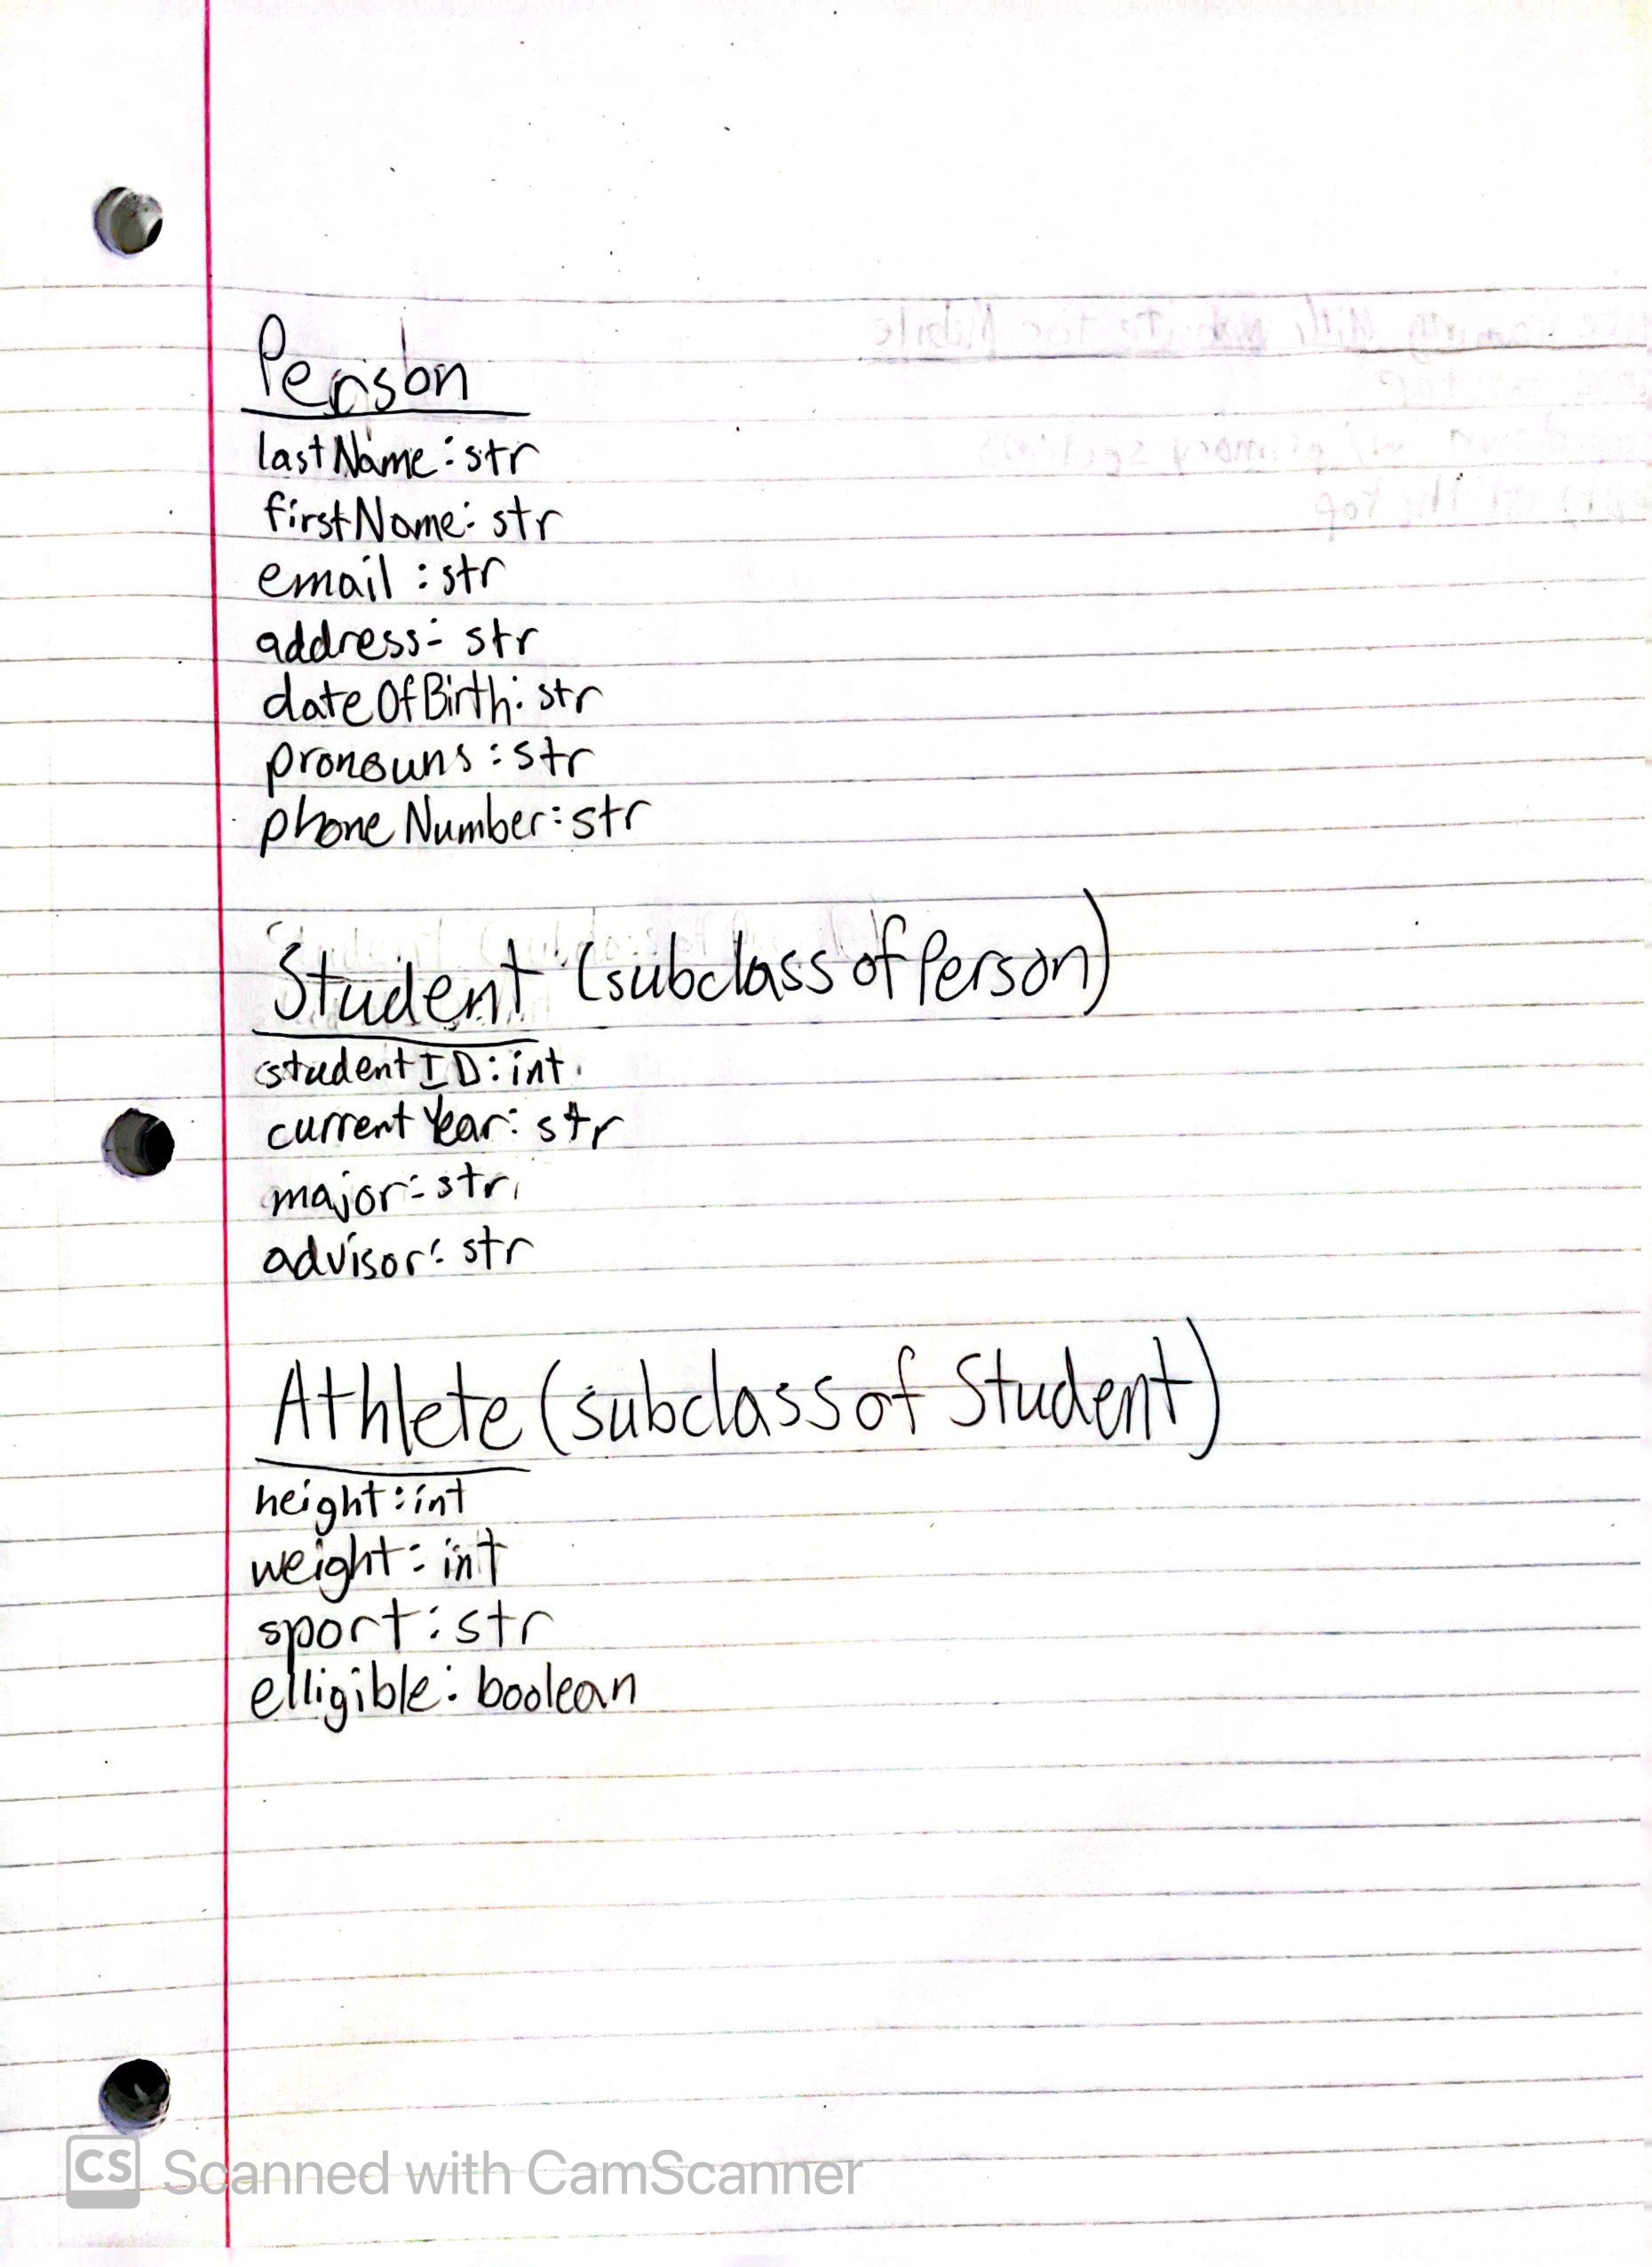 Person
lastName: str
firstName: str
email: str
address: str
dateOfBirth: str
pronouns: str
phoneNumber: str
Student (subclass of Person)
studentID: int
currentYear: str
major: str
advisor: str
Athlete (subclass of Student)
height: int
weight: int
sport: str
elligible: boolean
CS Scanned with CamScanner